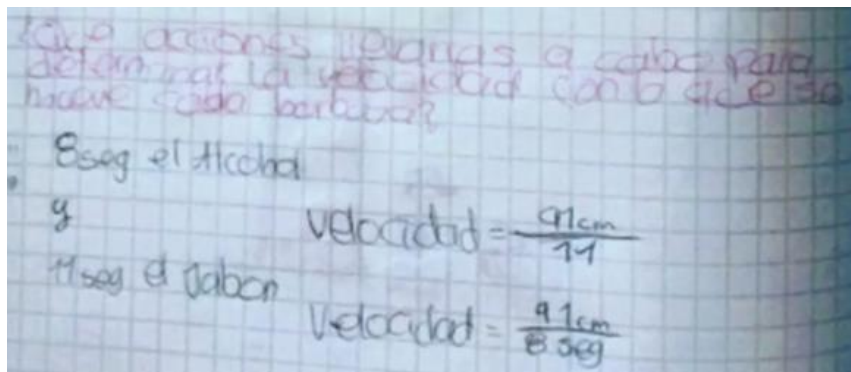 ¿Que acciones llevarias a cabo para
determinar la velocidad con la que se
mueve cada burbuja?
8seg el Alcohol
y
Velocidad = 91cm / 11
11seg el Jabon
Velocidad = 91cm / 8 seg